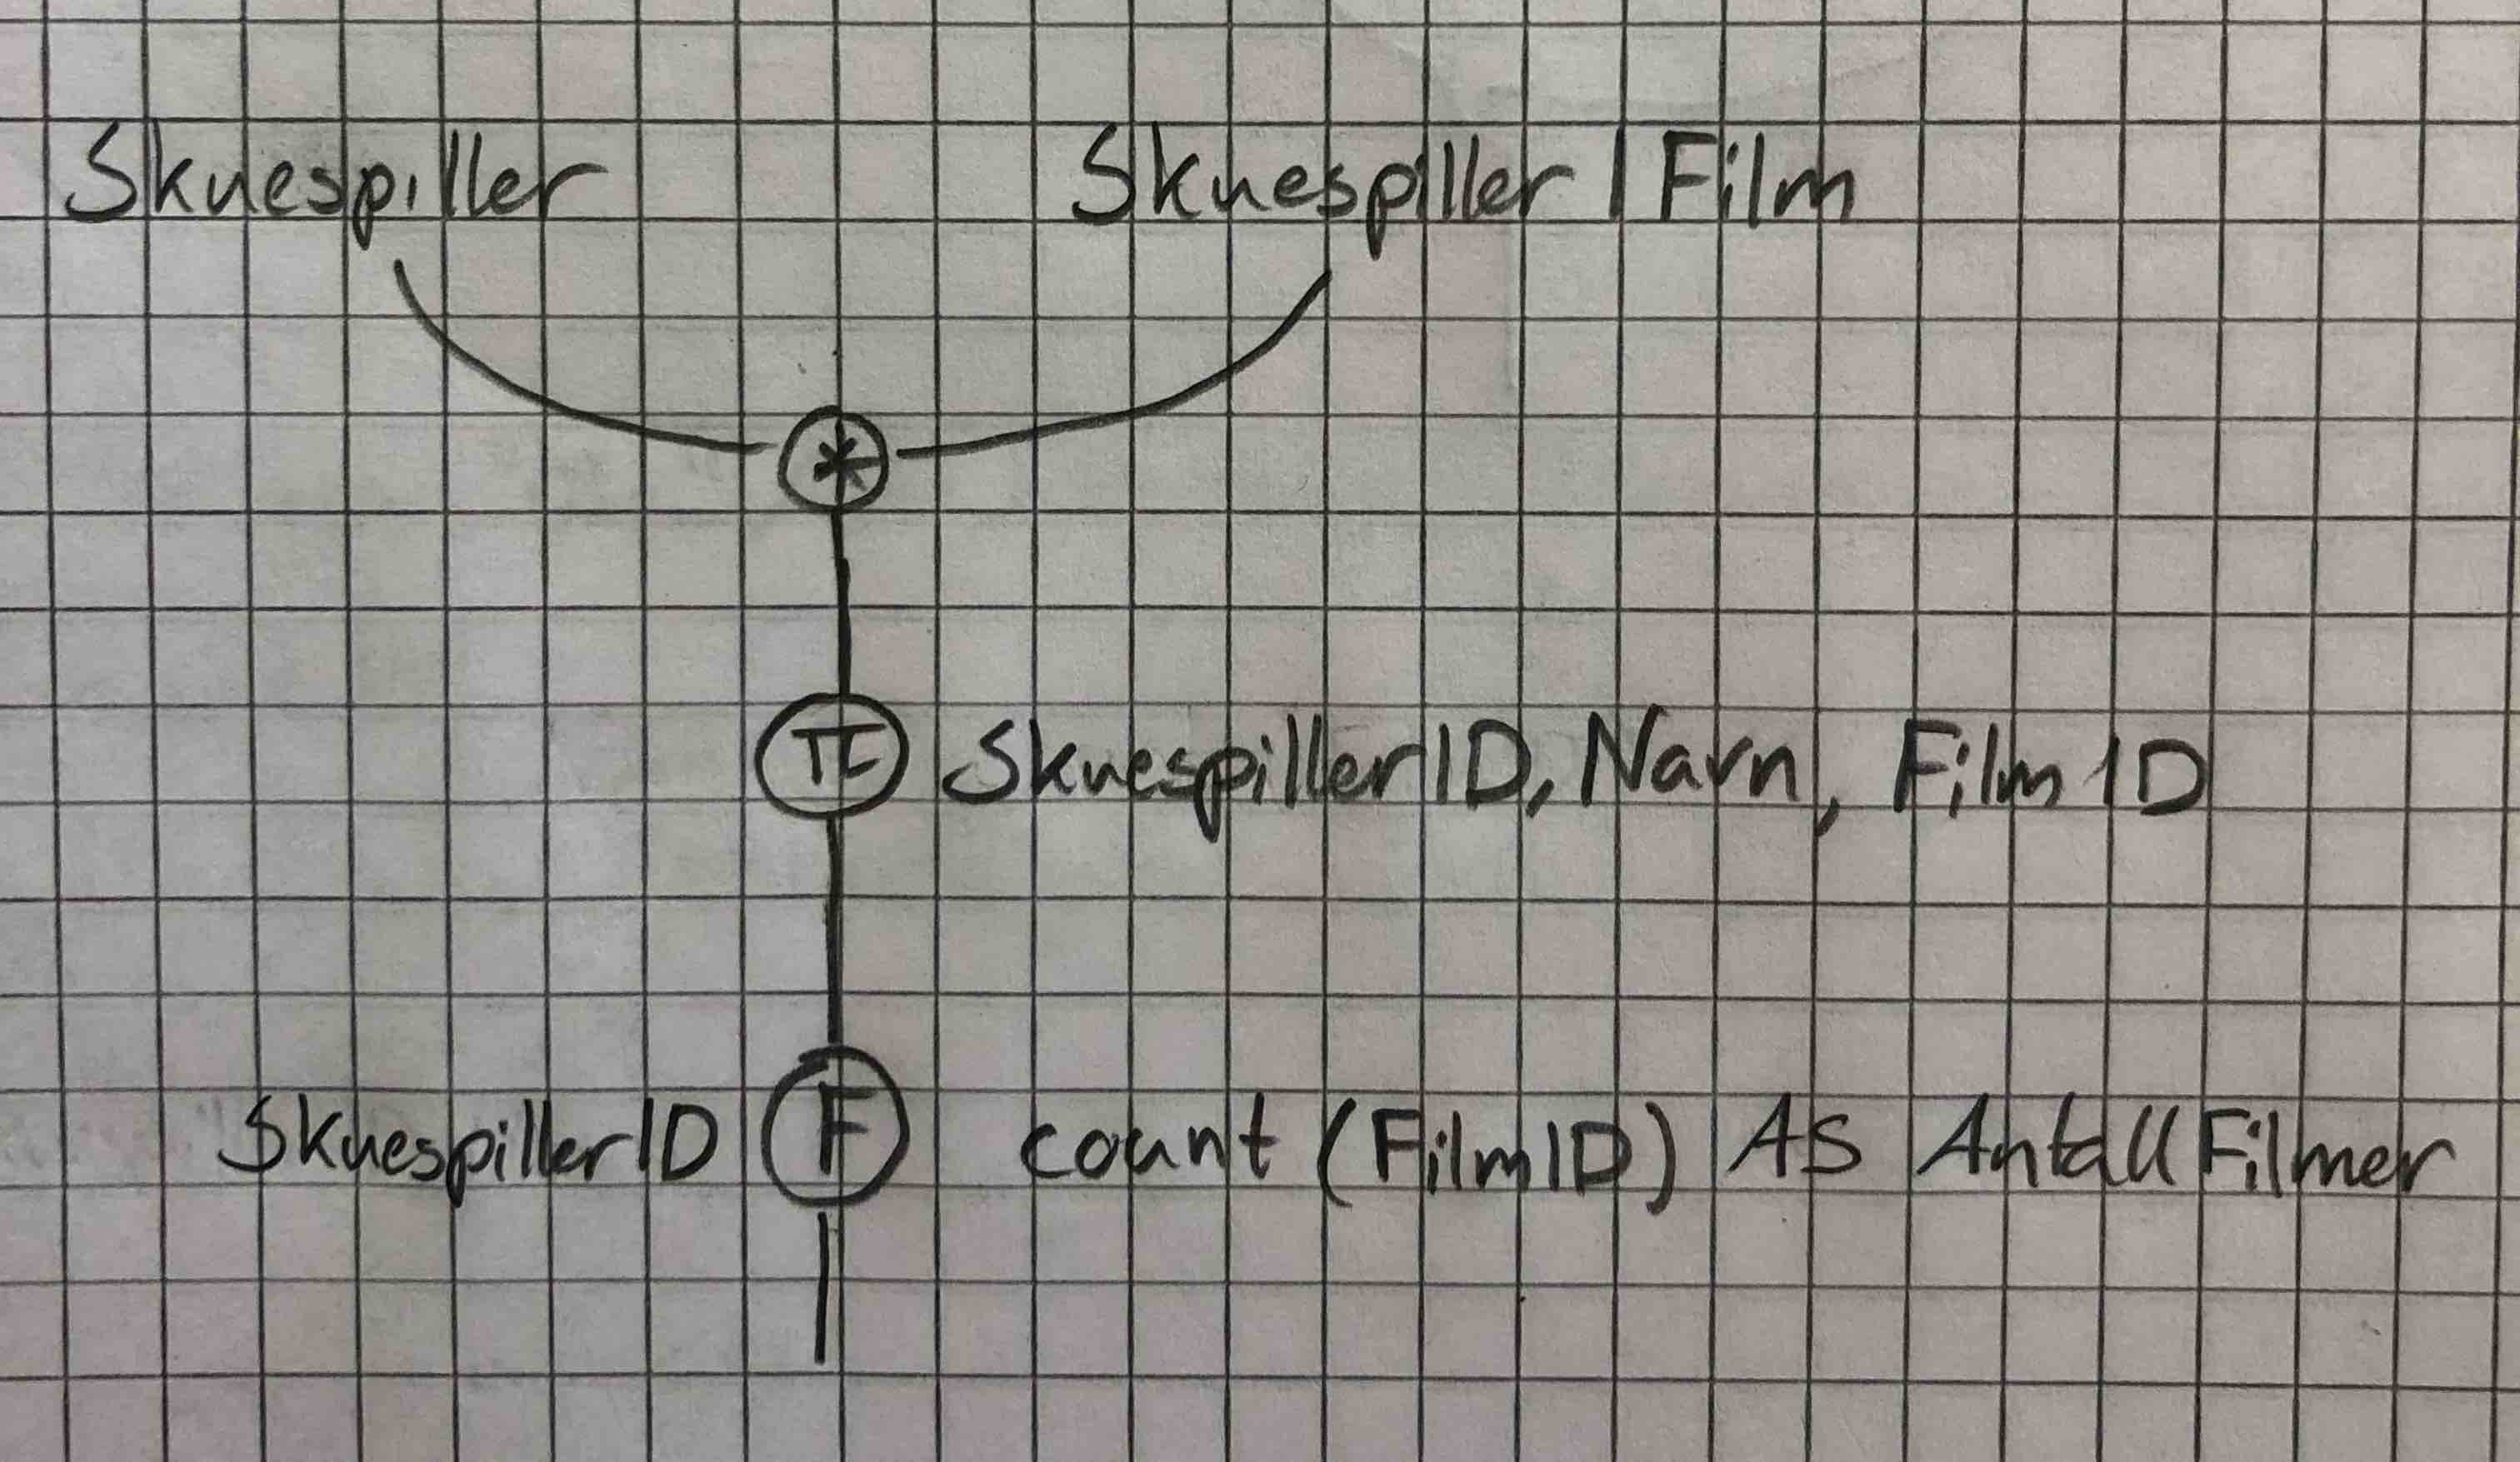 Skuespiller SkuespillerIFilm
*
π SkuespillerID, Navn, FilmID
SkuespillerID F count (FilmID) AS AntallFilmer